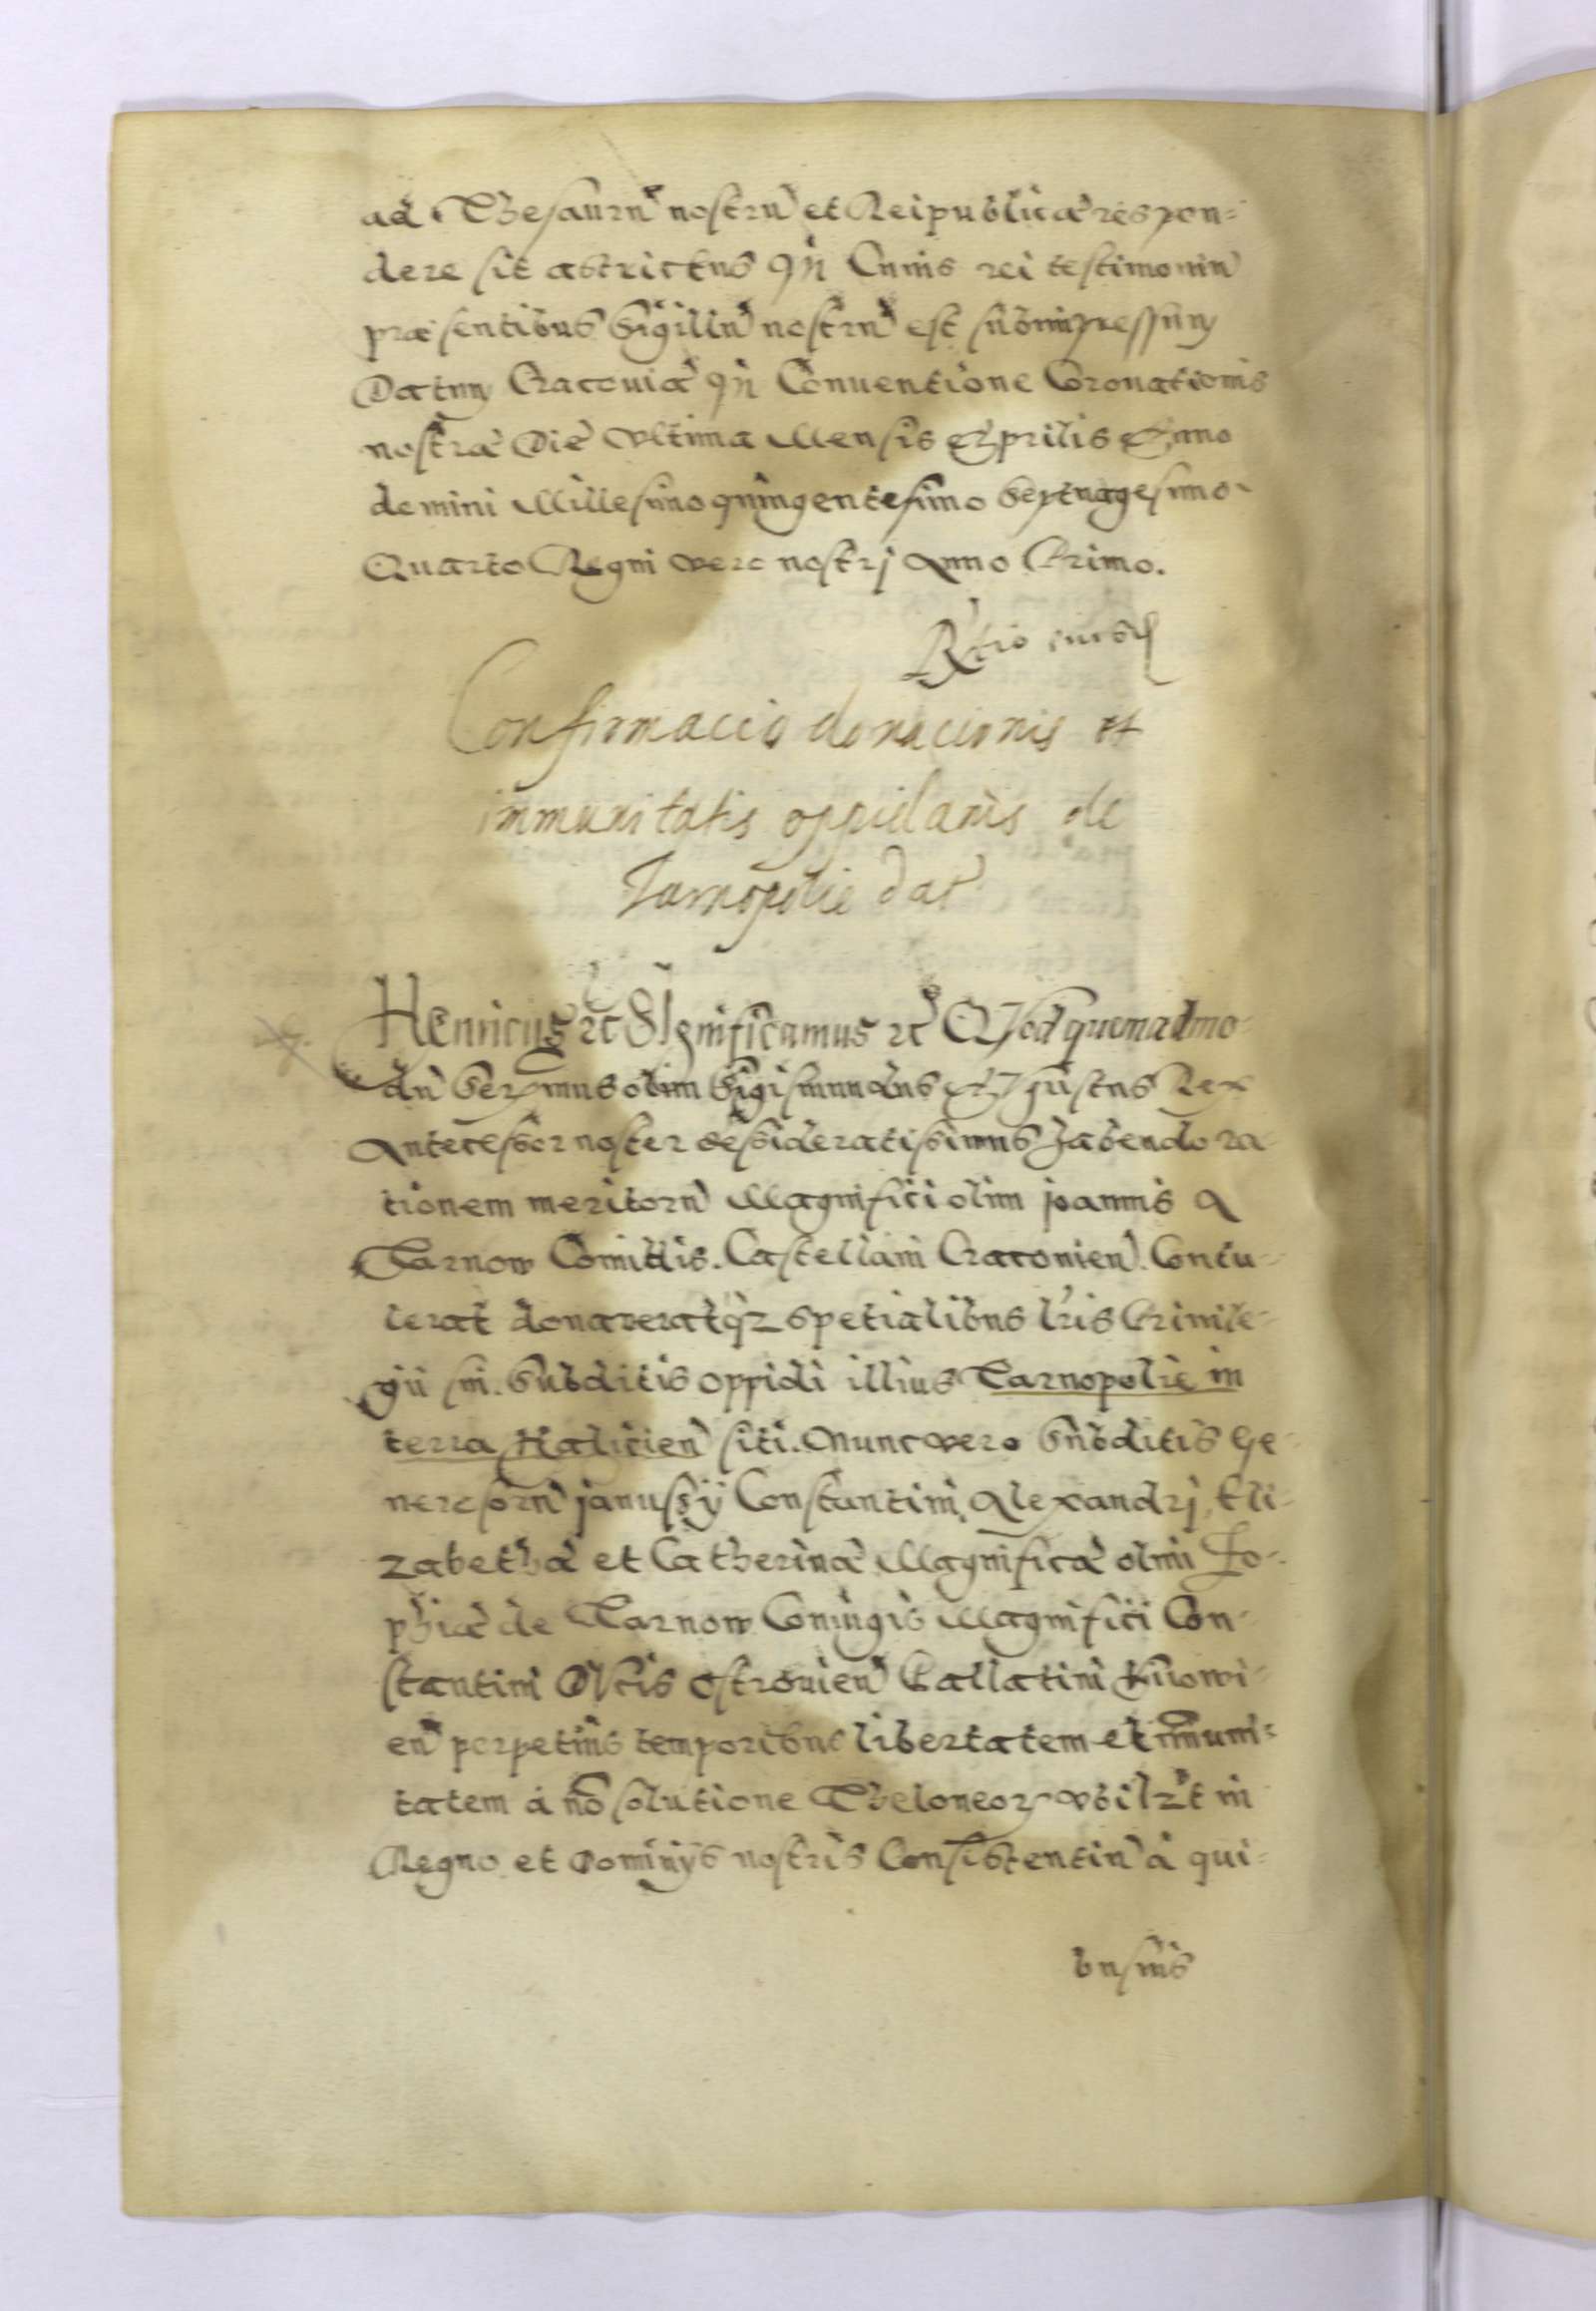 ad Thesaurũ nostrũ et Reipublicæ respon=
dere sit astrictus In Cuius rei testimoniũ
præsentibus Sigillũ nostrũ est subimpressum
Datum Cracoviæ In Conventione Coronationis
nostræ Die Vltima Mensis Aprilis Anno
domini Millesimo quingentesimo Septuagesimo
Quarto Regni vero nostrj Anno Primo.
Confirmacio donacionis et
immunitatis oppidanis de
Tarnopolie dat
Henricus etc SIgnificamus etc QVod quemadmo-
dũ Serẽmus olim Sigismundus AVgustus Rex
Antecessor noster desideratissimus habendo ra
tionem meritorũ Magnifici olim joannis a
Tarnow Comitis. Castellani Cracovieñ. Contu-
lerat donaveratq3 spetialibus lris Privile-
gii sui. Subditis oppidi illius Tarnopolie in
terra Halicieñ siti. Nunc vero Subditis Ge-
nerosorũ janussij Constantini, Alexandrj, Eli=
zabethæ et Catherinæ Magnificæ olim Zo-
phiæ de Tarnow Coniugis Magnifici Con-
stantini DVcis Ostrovieñ Pallatini Kijowi-
eñ perpetuis temporibus libertatem et immuni=
tatem á nõ solutione Theloneor vbilzt in
Regno et Dominijs nostris Consistentiũ à qui=
bus uis